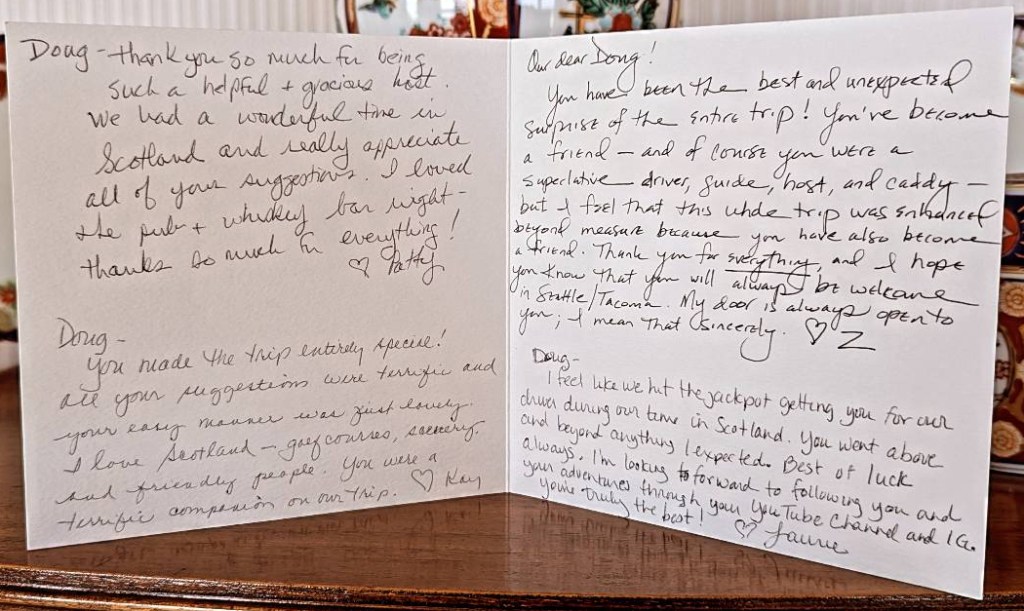 Doug - thank you so much for being
such a helpful + gracious host.
We had a wonderful time in
Scotland and really appreciate
all of your suggestions. I loved
the pub + whiskey bar night -
thanks so much for everything!
♡ Patty
Doug -
You made the trip entirely special!
All your suggestions were terrific and
your easy manner was just lovely.
I love Scotland - golf courses, scenery,
and friendly people. You were a
terrific companion on our trip. ♡ Kay
Our dear Doug!
You have been the best and unexpected
surprise of the entire trip! You've become
a friend - and of course you were a
superlative driver, guide, host, and caddy -
but I feel that this whole trip was enhanced
beyond measure because you have also become
a friend. Thank you for everything, and I hope
you know that you will always be welcome
in Seattle/Tacoma. My door is always open to
you; I mean that sincerely. ♡ Z
Doug -
I feel like we hit the jackpot getting you for our
driver during our time in Scotland. You went above
and beyond anything I expected. Best of luck
always. I'm looking forward to following you and
your adventures through your YouTube Channel and IG.
You're truly the best! ♡ Laurie